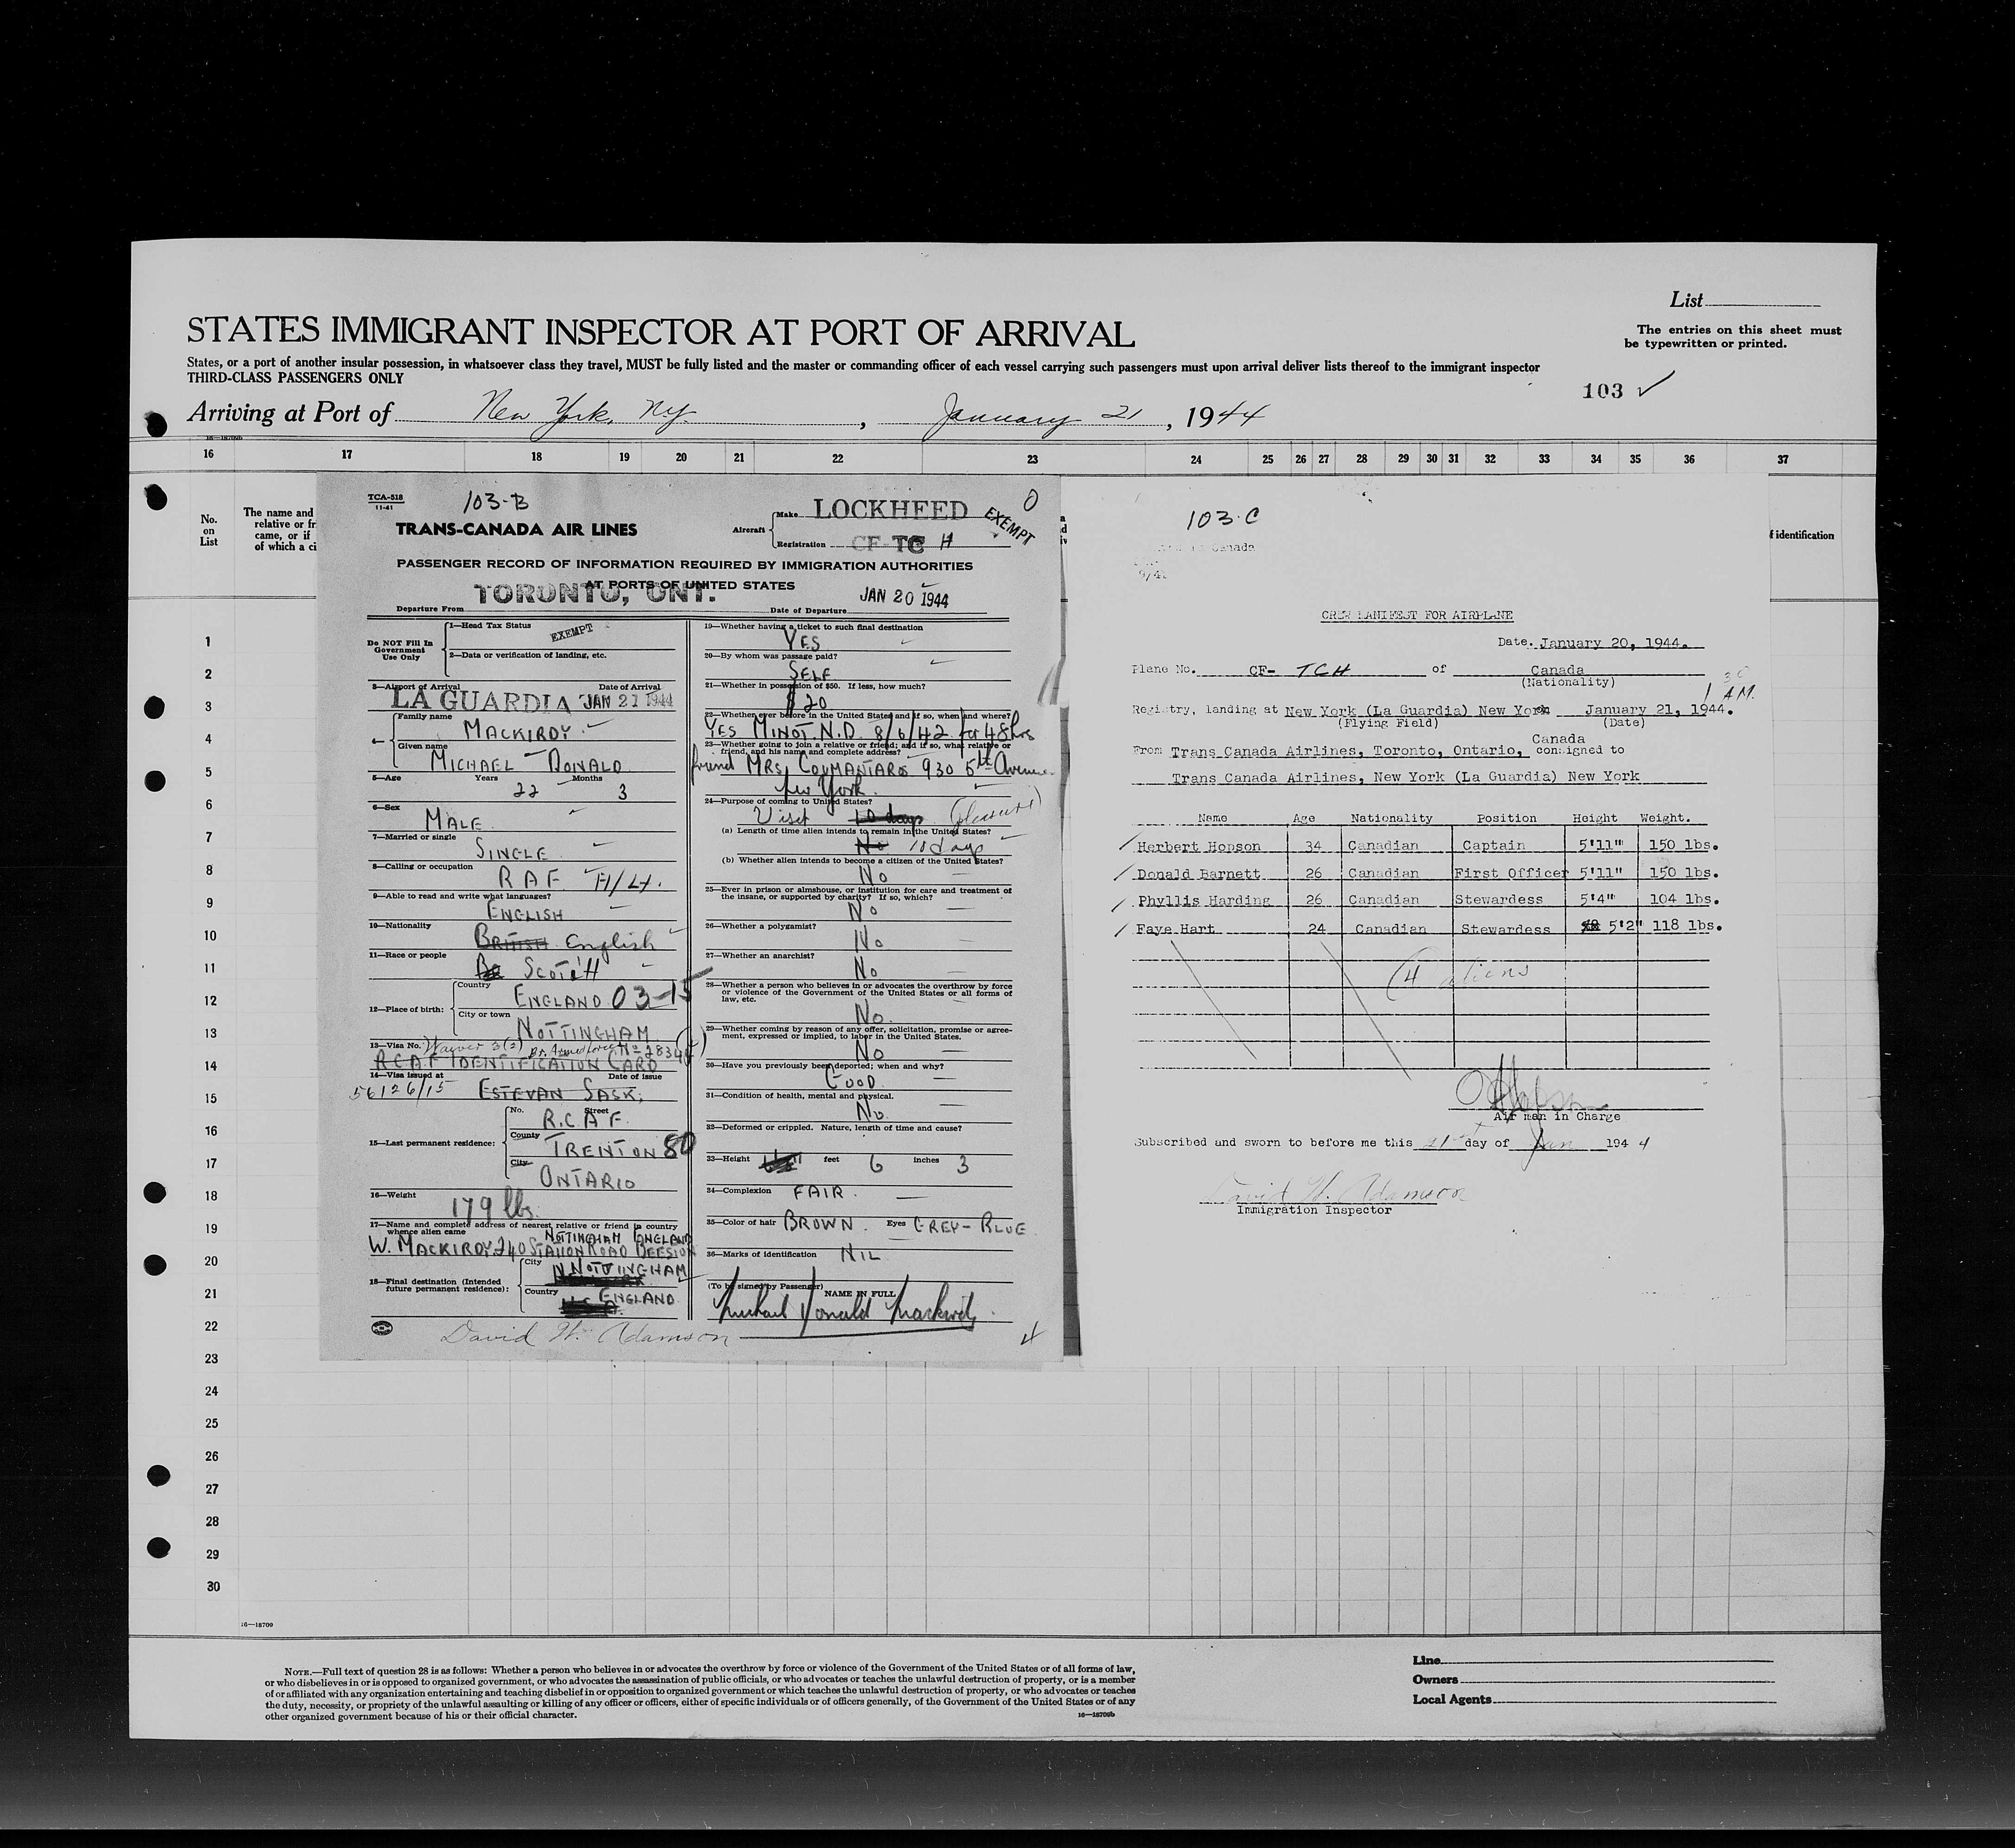 List
STATES IMMIGRANT INSPECTOR AT PORT OF ARRIVAL
The entries on this sheet must
be typewritten or printed.
States, or a port of another insular possession, in whatsoever class they travel, MUST be fully listed and the master or commanding officer of each vessel carrying such passengers must upon arrival deliver lists thereof to the immigrant inspector
THIRD-CLASS PASSENGERS ONLY
103 ✓
Arriving at Port of New York, N.Y. , January 21 , 1944
16 17 18 19 20 21 22 23 24 25 26 27 28 29 30 31 32 33 34 35 36 37
No.
on
List
The name and
relative or fr
came, or if
of which a ci
f identification
TCA-518
11-41
103-B
TRANS-CANADA AIR LINES
Aircraft
Make LOCKHEED
Registration CF-TC H
0
EXEMPT
PASSENGER RECORD OF INFORMATION REQUIRED BY IMMIGRATION AUTHORITIES
AT PORTS OF UNITED STATES
Departure From TORONTO, ONT.
Date of Departure JAN 20 1944
Do NOT Fill In
Government
Use Only
1—Head Tax Status EXEMPT
2—Data or verification of landing, etc.
3—Airport of Arrival Date of Arrival
LA GUARDIA JAN 21 1944
4—
Family name MACKIRDY
Given name MICHAEL - DONALD
5—Age Years 22 Months 3
6—Sex MALE
7—Married or single SINGLE
8—Calling or occupation RAF F/Lt.
9—Able to read and write what languages? ENGLISH
10—Nationality BRITISH English
11—Race or people SCOTCH
12—Place of birth:
Country ENGLAND 03-15
City or town NOTTINGHAM
13—Visa No. Waiver 3(2) Br. Armed forces No 28346
RCAF IDENTIFICATION CARD
14—Visa issued at Date of issue
56126/15 ESTEVAN SASK.
15—Last permanent residence:
No. Street R.C.A.F.
County TRENTON 80
City ONTARIO
16—Weight 179 lbs.
17—Name and complete address of nearest relative or friend in country
whence alien came NOTTINGHAM ENGLAND
W. MACKIRDY 240 STATION ROAD BEESTON
18—Final destination (Intended
future permanent residence):
City NOTTINGHAM
Country ENGLAND
19—Whether having a ticket to such final destination
YES
20—By whom was passage paid?
SELF
21—Whether in possession of $50. If less, how much?
$20
22—Whether ever before in the United States and if so, when and where?
YES MINOT. N.D. 8/6/42 for 48hrs
23—Whether going to join a relative or friend; and if so, what relative or
friend, and his name and complete address?
friend MRS. COUMANTAROS 930 5th Avenue
New York.
24—Purpose of coming to United States?
Visit 10 days (pleasure)
(a) Length of time alien intends to remain in the United States?
No 10 days
(b) Whether alien intends to become a citizen of the United States?
No
25—Ever in prison or almshouse, or institution for care and treatment of
the insane, or supported by charity? If so, which?
No
26—Whether a polygamist?
No
27—Whether an anarchist?
No
28—Whether a person who believes in or advocates the overthrow by force
or violence of the Government of the United States or all forms of
law, etc.
No.
29—Whether coming by reason of any offer, solicitation, promise or agree-
ment, expressed or implied, to labor in the United States.
No
30—Have you previously been deported; when and why?
GOOD
31—Condition of health, mental and physical.
No.
32—Deformed or crippled. Nature, length of time and cause?
33—Height feet 6 inches 3
34—Complexion FAIR.
35—Color of hair BROWN. Eyes GREY-BLUE
36—Marks of identification NIL
(To be signed by Passenger) NAME IN FULL
Michael Donald Mackirdy
David W. Adamson
103-C
Canada
9/41
CREW MANIFEST FOR AIRPLANE
Date. January 20, 1944.
Plane No. CF- TCH of Canada
(Nationality)
1 30 AM.
Registry, landing at New York (La Guardia) New York January 21, 1944.
(Flying Field) (Date)
From Trans Canada Airlines, Toronto, Ontario, Canada consigned to
Trans Canada Airlines, New York (La Guardia) New York
Name Age Nationality Position Height Weight.
Herbert Hopson 34 Canadian Captain 5'11" 150 lbs.
Donald Barnett 26 Canadian First Officer 5'11" 150 lbs.
Phyllis Harding 26 Canadian Stewardess 5'4" 104 lbs.
Faye Hart 24 Canadian Stewardess 5'2" 118 lbs.
(4 aliens
Air man in Charge
Subscribed and sworn to before me this 21st day of Jan 1944
David W. Adamson
Immigration Inspector
1
2
3
4
5
6
7
8
9
10
11
12
13
14
15
16
17
18
19
20
21
22
23
24
25
26
27
28
29
30
16—18709
NOTE.—Full text of question 28 is as follows: Whether a person who believes in or advocates the overthrow by force or violence of the Government of the United States or of all forms of law,
or who disbelieves in or is opposed to organized government, or who advocates the assassination of public officials, or who advocates or teaches the unlawful destruction of property, or is a member
of or affiliated with any organization entertaining and teaching disbelief in or opposition to organized government or which teaches the unlawful destruction of property, or who advocates or teaches
the duty, necessity, or propriety of the unlawful assaulting or killing of any officer or officers, either of specific individuals or of officers generally, of the Government of the United States or of any
other organized government because of his or their official character.
16—18709b
Line
Owners
Local Agents